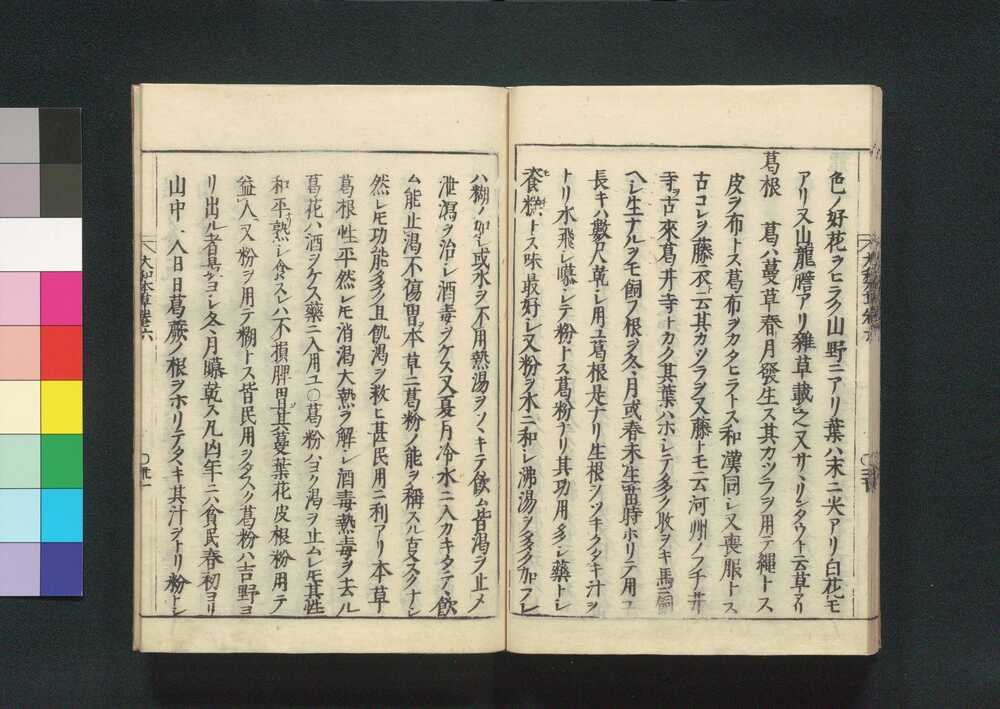 色ノ好花ヲヒラク山野ニアリ葉ハ末ニ尖アリ白花モ
アリ又山龍膽アリ雜草載之又サヽリンタウト云草アリ
葛根 葛ハ蔓草春月發生ス其カツラヲ用テ繩トス
皮ヲ布トス葛布ヲカタヒラトス和漢同シ又喪服トス
古コレヲ藤衣ト云其カツラヲ又藤トモ云河州ノフチ井
寺ヲ古來葛井寺トカク其葉ハホシテ多ク收ヲキ馬ニ飼
ヘシ生ナルヲモ飼フ根ヲ冬月或春未生苗時ホリテ用ユ
長キハ數尺乾シ用ユ葛根是ナリ生根ヲツキクタキ汁ヲ
トリ水飛シ曝シテ粉トス葛粉ナリ其功用多シ藥トシ
粮トス味最好シ又粉ヲ水ニ和シ沸湯ヲ多ク加フレ
ハ糊ノ如シ或水ヲ不用熱湯ヲソヽキテ飲ム皆渴ヲ止メ
泄瀉ヲ治シ酒毒ヲケス又夏月冷水ニ入カキタテヽ飲
ム能止渴不傷胃本草ニ葛粉ノ能ヲ稱スル亙スクナシ
然レモ功能多ク且飢渴ヲ救ヒ甚民用ニ利アリ本草
葛根性平然レモ消渴大熱ヲ解シ酒毒熱毒ヲ去ル
葛花ハ酒ヲケス藥ニ入用ユ○葛粉ハヨク渴ヲ止ムレモ其性
和平熟シ食スレハ不損脾胃其蔓葉花皮根粉用テ
益人又粉ヲ用テ糊トス皆民用ヲタスク葛粉ハ吉野ヨ
リ出ル者最ヨシ冬月曝乾ス凡凶年ニハ貧民春初ヨリ
山中ニ入日日葛蕨ノ根ヲホリテタヽキ其汁ヲトリ粉トシ
大和本草卷六